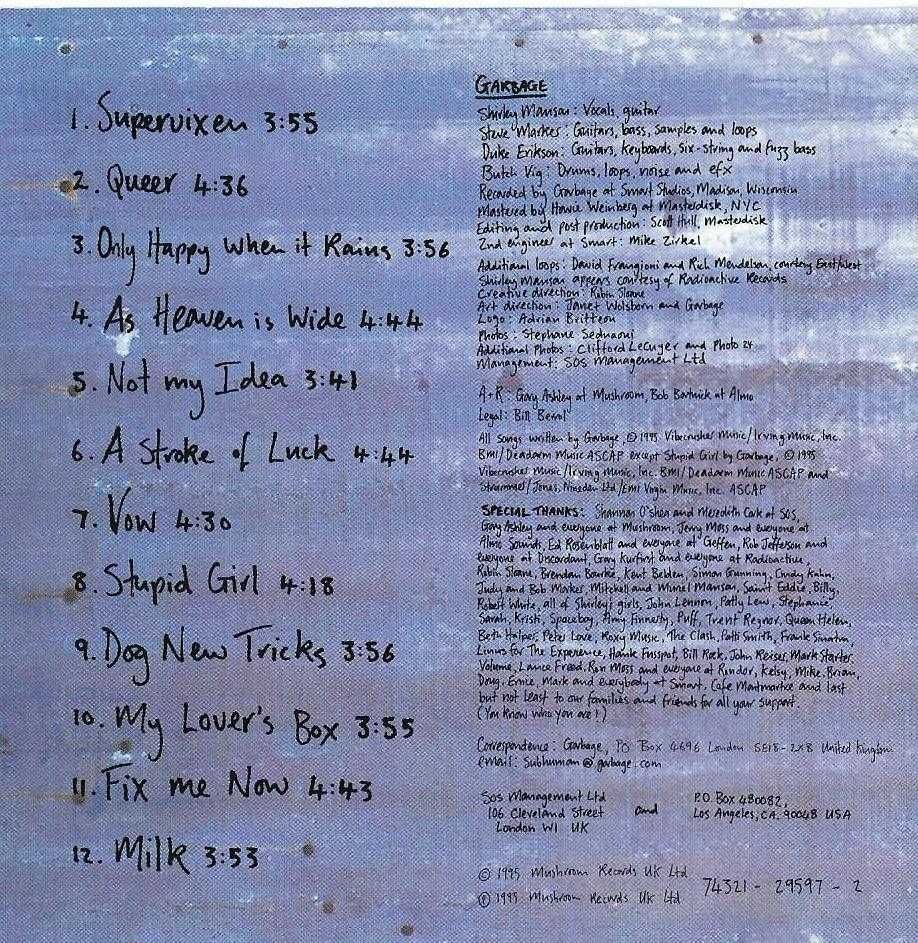 1. Supervixen 3:55
2. Queer 4:36
3. Only Happy When it Rains 3:56
4. As Heaven is Wide 4:44
5. Not my Idea 3:41
6. A Stroke of Luck 4:44
7. Vow 4:30
8. Stupid Girl 4:18
9. Dog New Tricks 3:56
10. My Lover's Box 3:55
11. Fix me Now 4:43
12. Milk 3:53
GARBAGE
Shirley Manson: Vocals, guitar
Steve Marker: Guitars, bass, samples and loops
Duke Erikson: Guitars, keyboards, six-string and fuzz bass
Butch Vig: Drums, loops, noise and efx
Recorded by Garbage at Smart Studios, Madison, Wisconsin
Mastered by Howie Weinberg at Masterdisk, NYC
Editing and post production: Scott Hull, Masterdisk
2nd engineer at Smart: Mike Zirkel
Additional loops: David Frangioni and Rich Mendelson, courtesy East/West
Shirley Manson appears courtesy of Radioactive Records
Creative direction: Robin Sloane
Art direction: Janet Wolsborn and Garbage
Logo: Adrian Britteon
Photos: Stephane Sednaoui
Additional Photos: Clifford LeCuyer and Photo 24
Management: SOS Management Ltd
A+R: Gary Ashley at Mushroom, Bob Bortnick at Almo
Legal: Bill Berrol
All songs written by Garbage, © 1995 Vibecrusher Music/Irving Music, Inc.
BMI/Deadarm Music ASCAP except Stupid Girl by Garbage, © 1995
Vibecrusher Music/Irving Music, Inc. BMI/Deadarm Music ASCAP and
Strummer/Jones, Nineden Ltd/EMI Virgin Music, Inc. ASCAP
SPECIAL THANKS: Shannon O'shea and Meredith Cork at SOS,
Gary Ashley and everyone at Mushroom, Jerry Moss and everyone at
Almo Sounds, Ed Rosenblatt and everyone at Geffen, Rob Jefferson and
everyone at Discordant, Gary Kurfirst and everyone at Radioactive,
Robin Sloane, Brendan Bourke, Kent Belden, Simon Gunning, Cindy Kahn,
Judy and Bob Marker, Mitchell and Muriel Manson, Saint Eddie, Billy,
Robert White, all of Shirley's girls, John Lennon, Patty Lew, Stephanie,
Sarah, Kristi, Spaceboy, Amy Finnerty, Puff, Trent Reznor, Queen Helen,
Beth Halper, Pete Love, Roxy Music, The Clash, Patti Smith, Frank Sinatra,
Linus for The Experience, Hank Fusspot, Bill Rock, John Reiser, Mark Starter
Volume, Lance Freed, Ron Moss and everyone at Rondor, Kelsy, Mike, Brian,
Doug, Ernie, Mark and everybody at Smart, Cafe Montmartre and last
but not least to our families and friends for all your support.
(You know who you are!)
Correspondence: Garbage, PO Box 4696 London SE18-2XB United Kingdom
email: Subhuman@garbage.com
SOS Management Ltd
106 Cleveland Street
London W1 UK
and
P.O. Box 480082,
Los Angeles, CA. 90048 USA
© 1995 Mushroom Records UK Ltd
℗ 1995 Mushroom Records UK Ltd
74321 - 29597 - 2